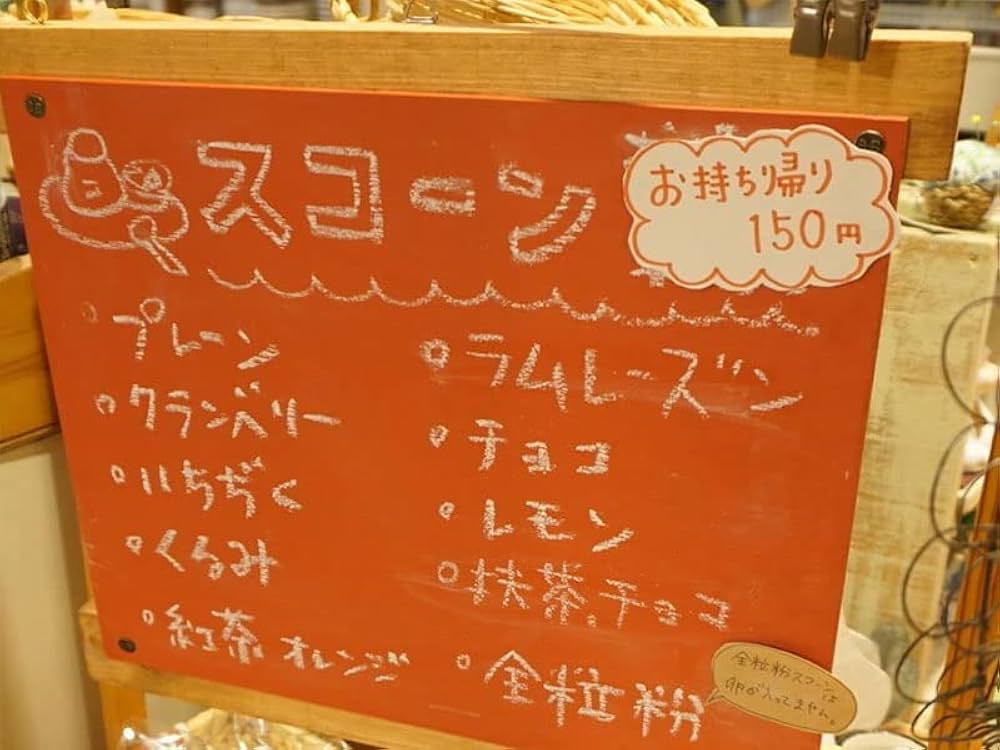 スコーン
お持ち帰り
150円
プレーン
クランベリー
いちぢく
くるみ
紅茶オレンジ
ラムレーズン
チョコ
レモン
抹茶チョコ
全粒粉
全粒粉スコーンは
卵が入ってません。